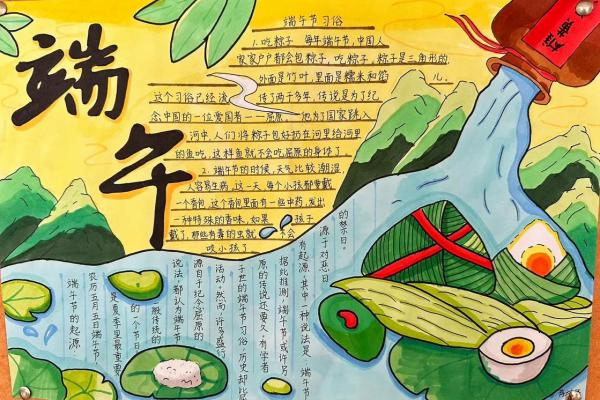 端午
雄黄
端午节习俗
1.吃粽子 每年端午节,中国人
家家户户都会包粽子,吃粽子.粽子是三角形的,
外面是竹叶,里面是糯米和馅 儿.
这个习俗已经流 传了两千多年.传说是为了纪
念中国的一位爱国者——屈原——他为了国家跳入
河中.人们将粽子包好扔在河里给河里
的鱼吃,这样鱼就不会吃屈原的身体了
2.端午节的时候,天气比较潮湿,
人容易生病,这一天,每个小孩都要戴
一个香包,这个香包里面有一些中药,发出
一种特殊的香味,如果 小孩子
戴了,那些有毒的虫就 不会
咬小孩了.
端午节的起源:
农历五月五日端午节,
是夏季里最重要
的一个节日
一般传统的
说法,都认为端午节
源自于纪念屈原的
活动。然而,许多盛行
于世的端午节习俗,历史却比屈
原的传说还要久,有学者
据此推测,端午节或许另
有起源,其中一种说法是,端午节
源于对恶日
的禁忌。